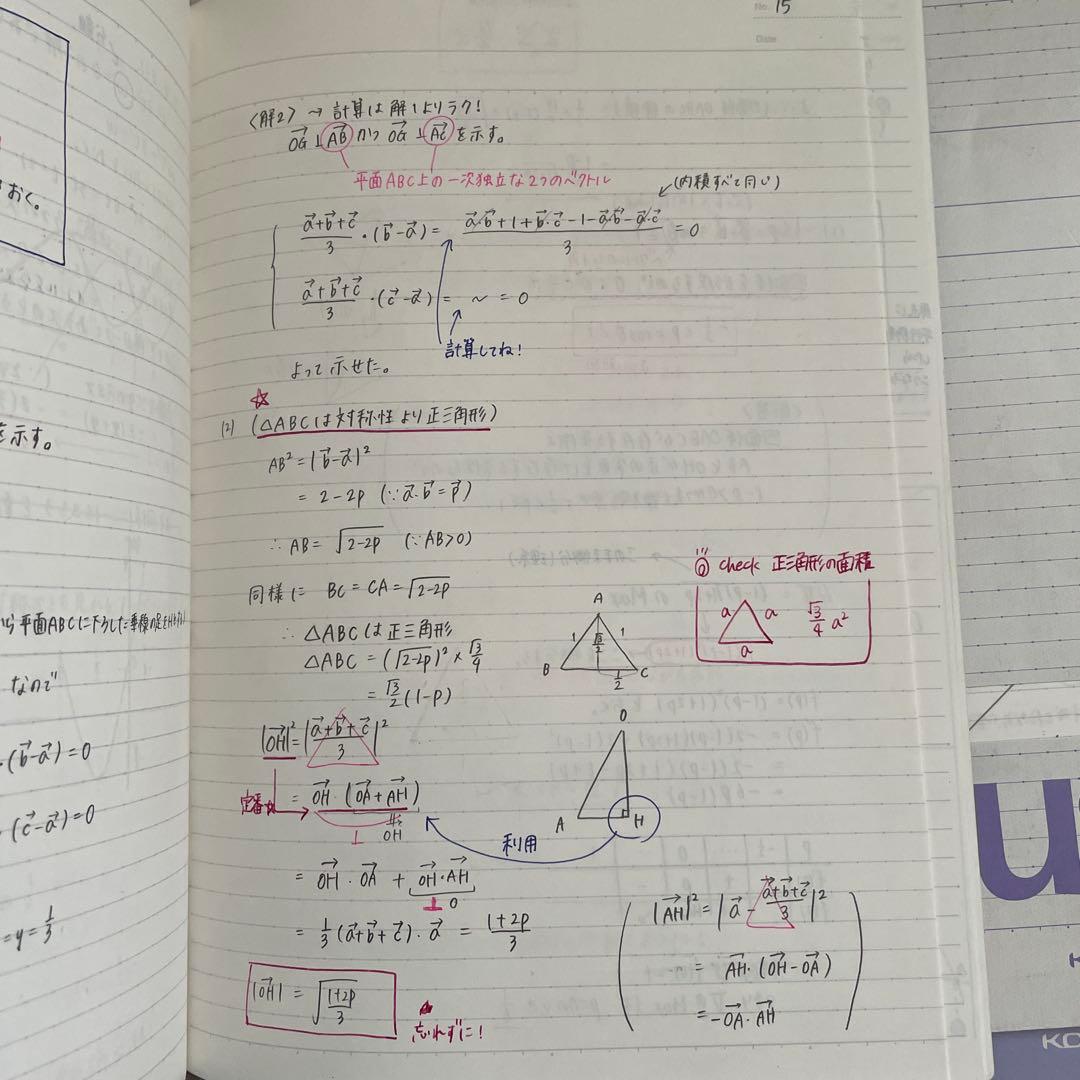 No. 15
Date
〈解2〉 → 計算は解1よりラク!
$\overrightarrow{OG}$ ⊥ $\overrightarrow{AB}$ かつ $\overrightarrow{OG}$ ⊥ $\overrightarrow{AC}$ を示す。
平面ABC上の一次独立な2つのベクトル
(内積すべて同じ)
$\frac{\vec{a}+\vec{b}+\vec{c}}{3}\cdot(\vec{b}-\vec{a}) = \frac{\vec{a}\cdot\vec{b}+1+\vec{b}\cdot\vec{c}-1-\vec{a}\cdot\vec{b}-\vec{a}\cdot\vec{c}}{3} = 0$
$\frac{\vec{a}+\vec{b}+\vec{c}}{3}\cdot(\vec{c}-\vec{a}) = 〜 = 0$
計算してね!
よって示せた。
☆
(2) (△ABCは対称性より正三角形)
$AB^2 = |\vec{b}-\vec{a}|^2$
$= 2-2p$ (∵ $\vec{a}\cdot\vec{b}=\vec{p}$)
∴ $AB = \sqrt{2-2p}$ (∵ AB>0)
同様に $BC = CA = \sqrt{2-2p}$
∴ △ABCは正三角形
$△ABC = (\sqrt{2-2p})^2 × \frac{\sqrt{3}}{4}$
$= \frac{\sqrt{3}}{2}(1-p)$
A
1 $\frac{\sqrt{3}}{2}$ 1
B C
$\frac{1}{2}$
check 正三角形の面積
a a $\frac{\sqrt{3}}{4}a^2$
a
$|\overrightarrow{OH}|^2 = |\frac{\vec{a}+\vec{b}+\vec{c}}{3}|^2$
定番☆ $= \overrightarrow{OH}\cdot(\overrightarrow{OA}+\overrightarrow{AH})$
⊥ OH
利用
O
A H
$= \overrightarrow{OH}\cdot\overrightarrow{OA} + \overrightarrow{OH}\cdot\overrightarrow{AH}$
⊥ 0
$= \frac{1}{3}(\vec{a}+\vec{b}+\vec{c})\cdot\vec{a} = \frac{1+2p}{3}$
$|\overrightarrow{OH}| = \sqrt{\frac{1+2p}{3}}$
忘れずに!
$|\overrightarrow{AH}|^2 = |\vec{a}-\frac{\vec{a}+\vec{b}+\vec{c}}{3}|^2$
$= \overrightarrow{AH}\cdot(\overrightarrow{OH}-\overrightarrow{OA})$
$= -\overrightarrow{OA}\cdot\overrightarrow{AH}$
おく。
を示す。
ら平面ABCに下ろした垂線の足をHと
なので
$\cdot(\vec{b}-\vec{a})=0$
$(\vec{c}-\vec{a})=0$
$=y=\frac{1}{3}$
u